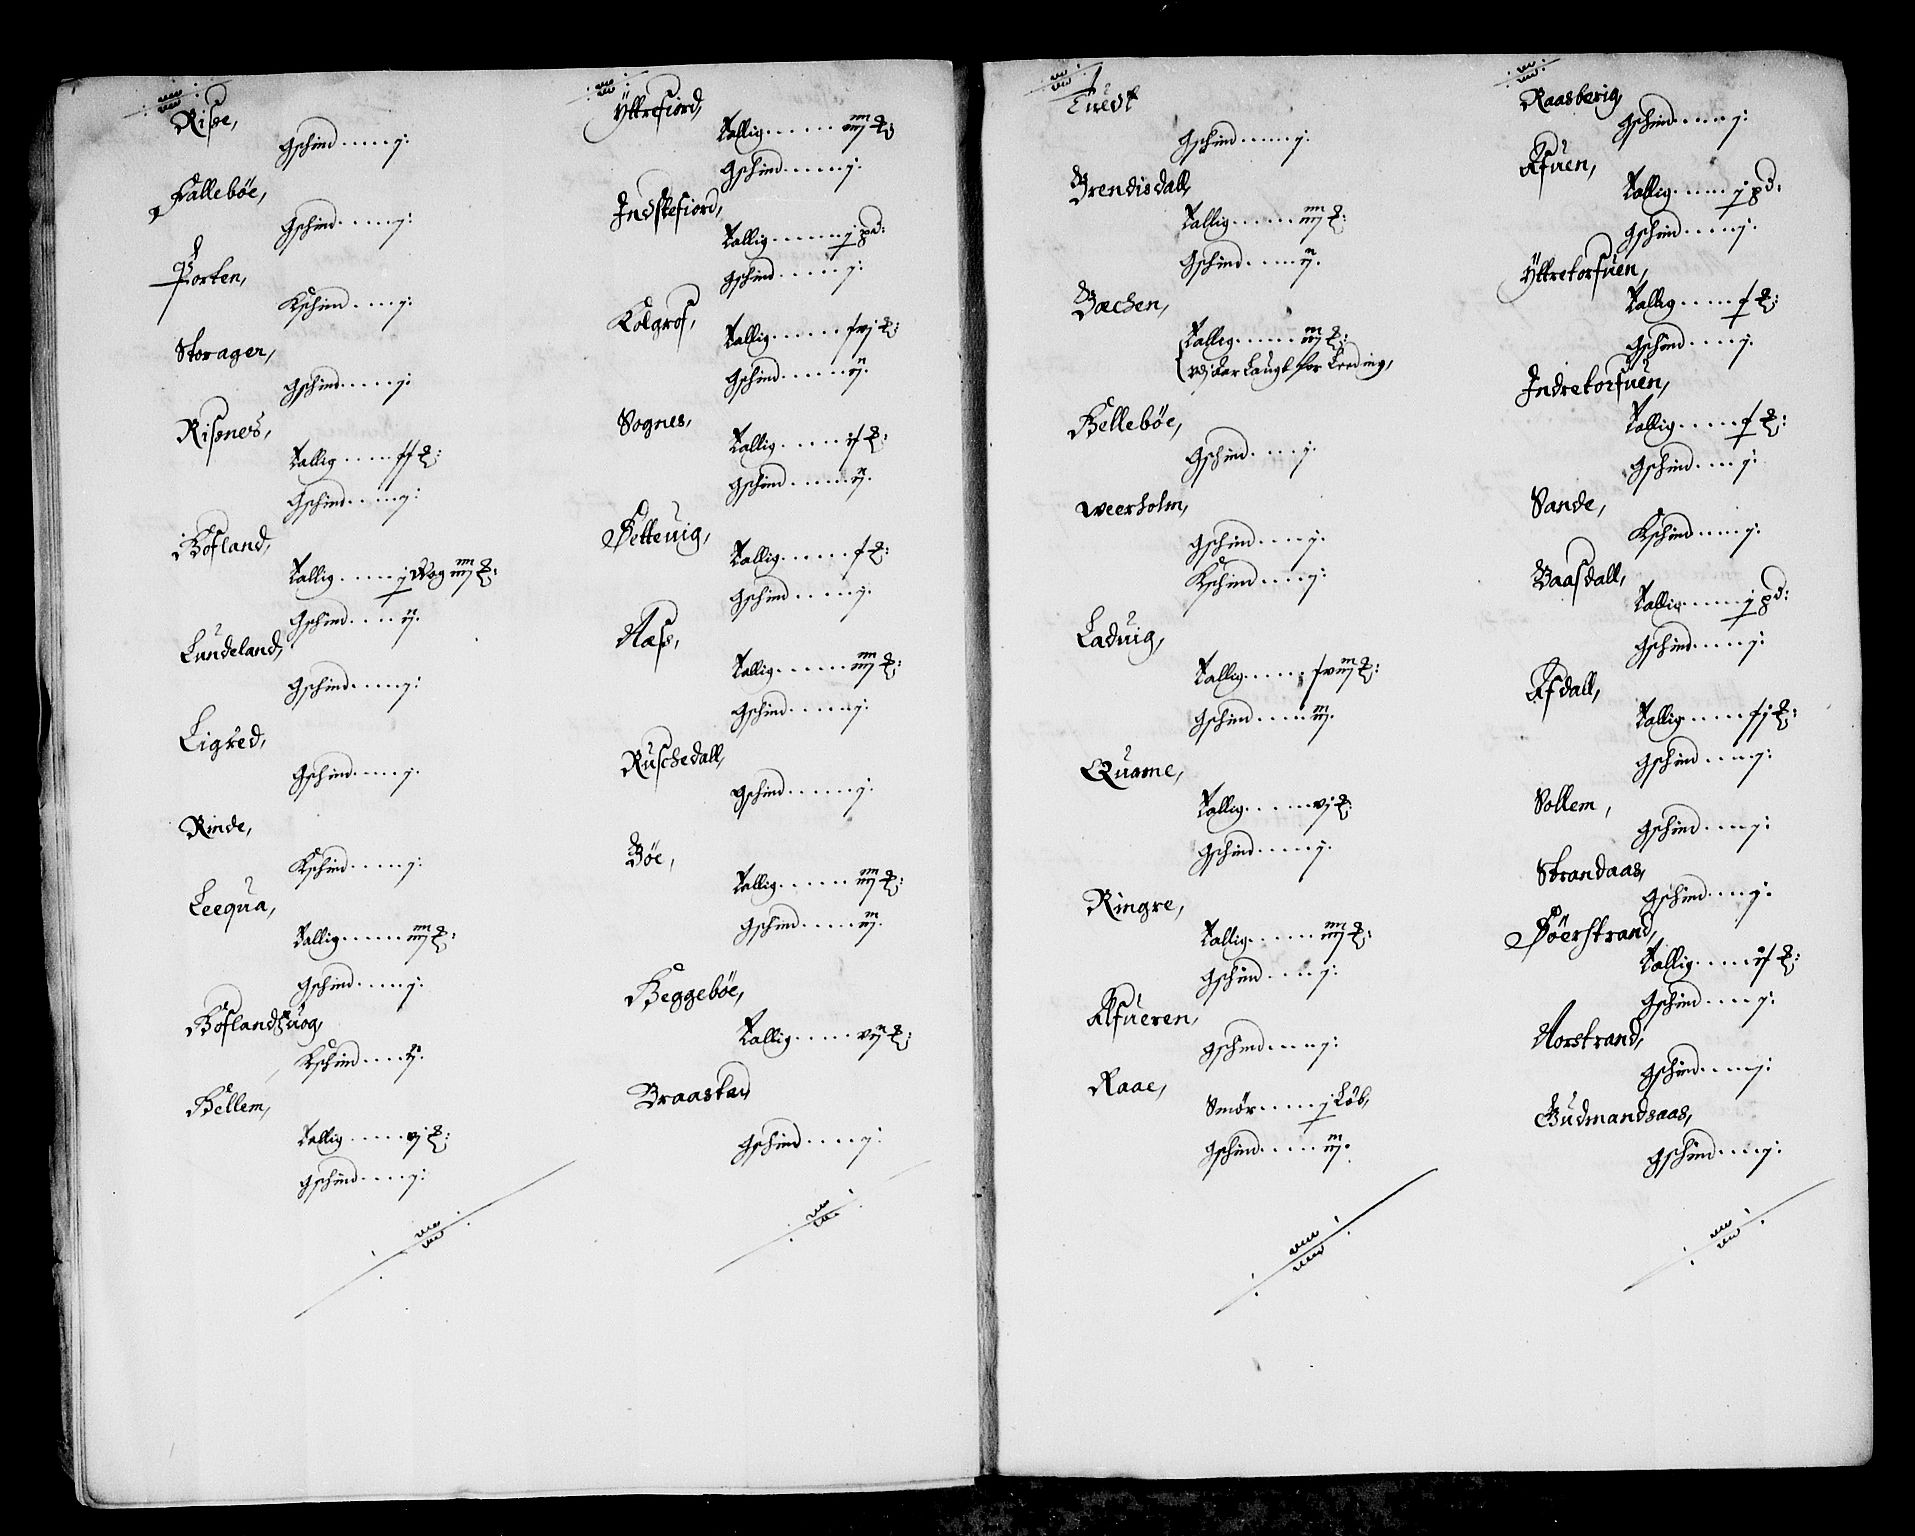 Risøe,
Gschind ..... j.
Hallebøe,
Gschind ..... j.
Porten,
Kschind ..... j.
Storager,
Gschind ..... j.
Risenes,
Tallig ..... ff ℔:
Gschind ..... j.
Hofland,
Tallig ..... j Wog iiij ℔:
Gschind .... ij.
Lundeland,
Gschind ..... j.
Ligred,
Gschind ..... j.
Rinde,
Kschind ..... j.
Leequa,
Tallig ...... iiij ℔:
Gschind ..... j.
Hoflandzuog,
Kschind .... ij.
Hellem,
Tallig ..... vj ℔:
Gschind .... j.
Yttrefiord,
Tallig ...... iiij ℔:
Gschind ...... j.
Indrefiord,
Tallig ....... j pd:
Gschind ...... j.
Kolgrof,
Tallig ....... fvj ℔:
Gschind ...... ij.
Sognes,
Tallig ...... if ℔:
Gschind ...... ij.
Settevig,
Tallig ...... f ℔:
Gschind ...... j.
Næss,
Tallig ...... iiij ℔:
Gschind ...... j.
Ruschedall,
Gschind ...... j.
Bøe,
Tallig ...... iiij ℔:
Gschind ..... iij.
Heggebøe,
Tallig ..... vij ℔:
Braastad
Gschind .... j.
Tuedt
Gschind ..... j.
Brendisdall,
Tallig ...... iiij ℔:
Gschind ..... ij.
Bechen,
Tallig ...... iij ℔:
Hellebøe,
Gschind .... j.
Weerholm,
Gschind .... j.
Kschind .... j.
Laduig,
Tallig ..... fviij ℔:
Gschind ..... iij.
Quame,
Tallig ...... vj ℔:
Gschind ..... j.
Ringre,
Tallig ...... iiij ℔:
Gschind .... j.
Alfueren,
Gschind .... j.
Raae,
Smør ..... j Løb,
Gschind ..... iij.
Raasberig,
Gschind ..... j.
Afuen,
Tallig ..... j pd:
Gschind ..... j.
Yttretorfuen,
Tallig ..... f ℔:
Gschind ..... j.
Indretorfuen,
Tallig ..... f ℔:
Gschind .... j.
Sande,
Kschind .... j.
Baasdall,
Tallig ..... j pd:
Gschind ..... j.
Afdall,
Tallig ..... fj ℔:
Gschind .... j.
Sollem,
Gschind .... j.
Strandaas,
Gschind .... j.
Søerstrand,
Tallig ..... if ℔:
Gschind .... j.
Norstrand,
Gschind .... j.
Gudmandsaas,
Gschind .... j.